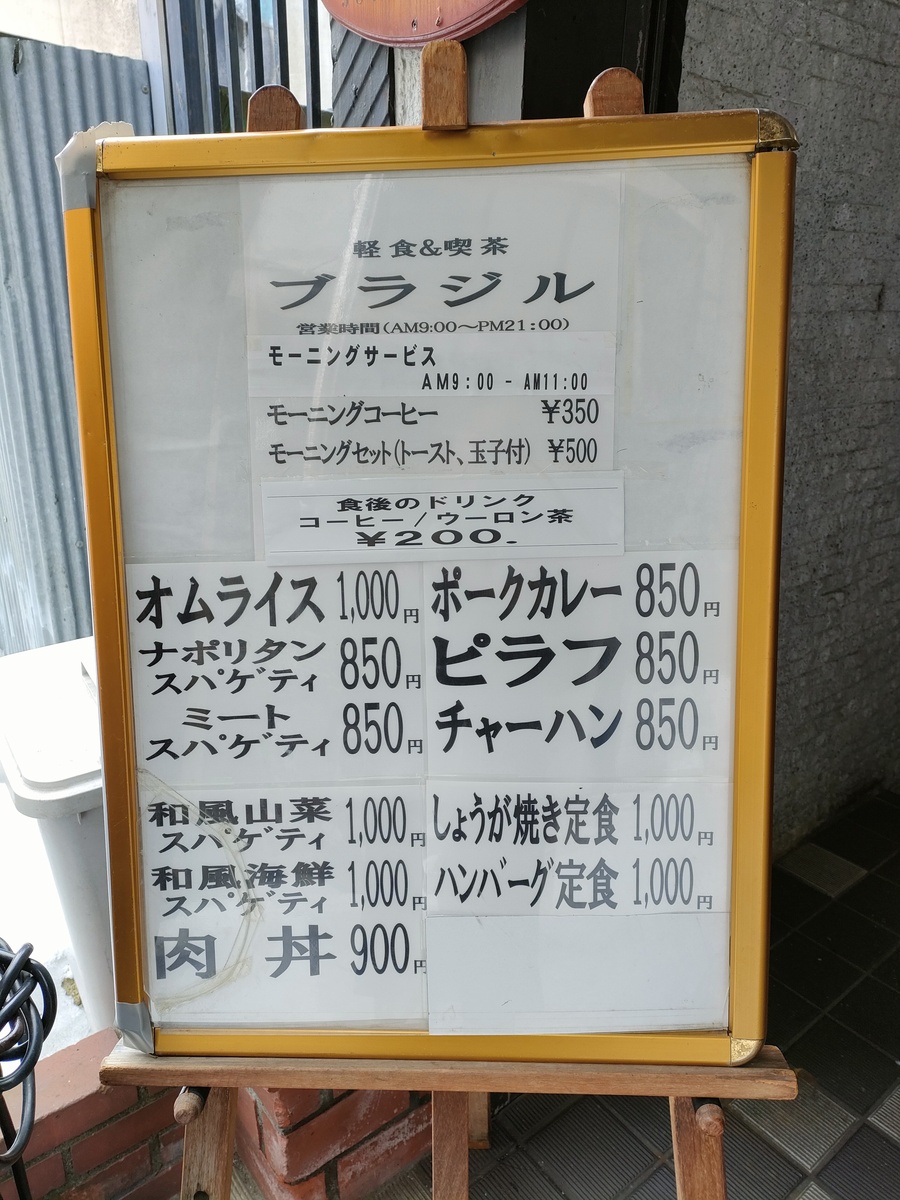 軽食&喫茶
ブラジル
営業時間(AM9:00~PM21:00)
モーニングサービス
AM9:00 - AM11:00
モーニングコーヒー ¥350
モーニングセット(トースト、玉子付) ¥500
食後のドリンク
コーヒー/ウーロン茶
¥200.
オムライス 1,000円
ナポリタン
スパゲティ 850円
ミート
スパゲティ 850円
和風山菜
スパゲティ 1,000円
和風海鮮
スパゲティ 1,000円
肉丼 900円
ポークカレー 850円
ピラフ 850円
チャーハン 850円
しょうが焼き定食 1,000円
ハンバーグ定食 1,000円